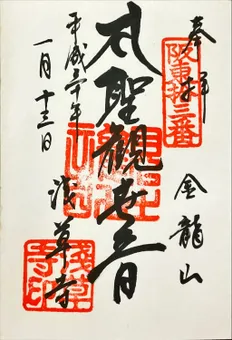 奉拝
坂東拾三番
金龍山
大聖観世音
浅草寺
浅草寺印
平成三十年
一月十三日